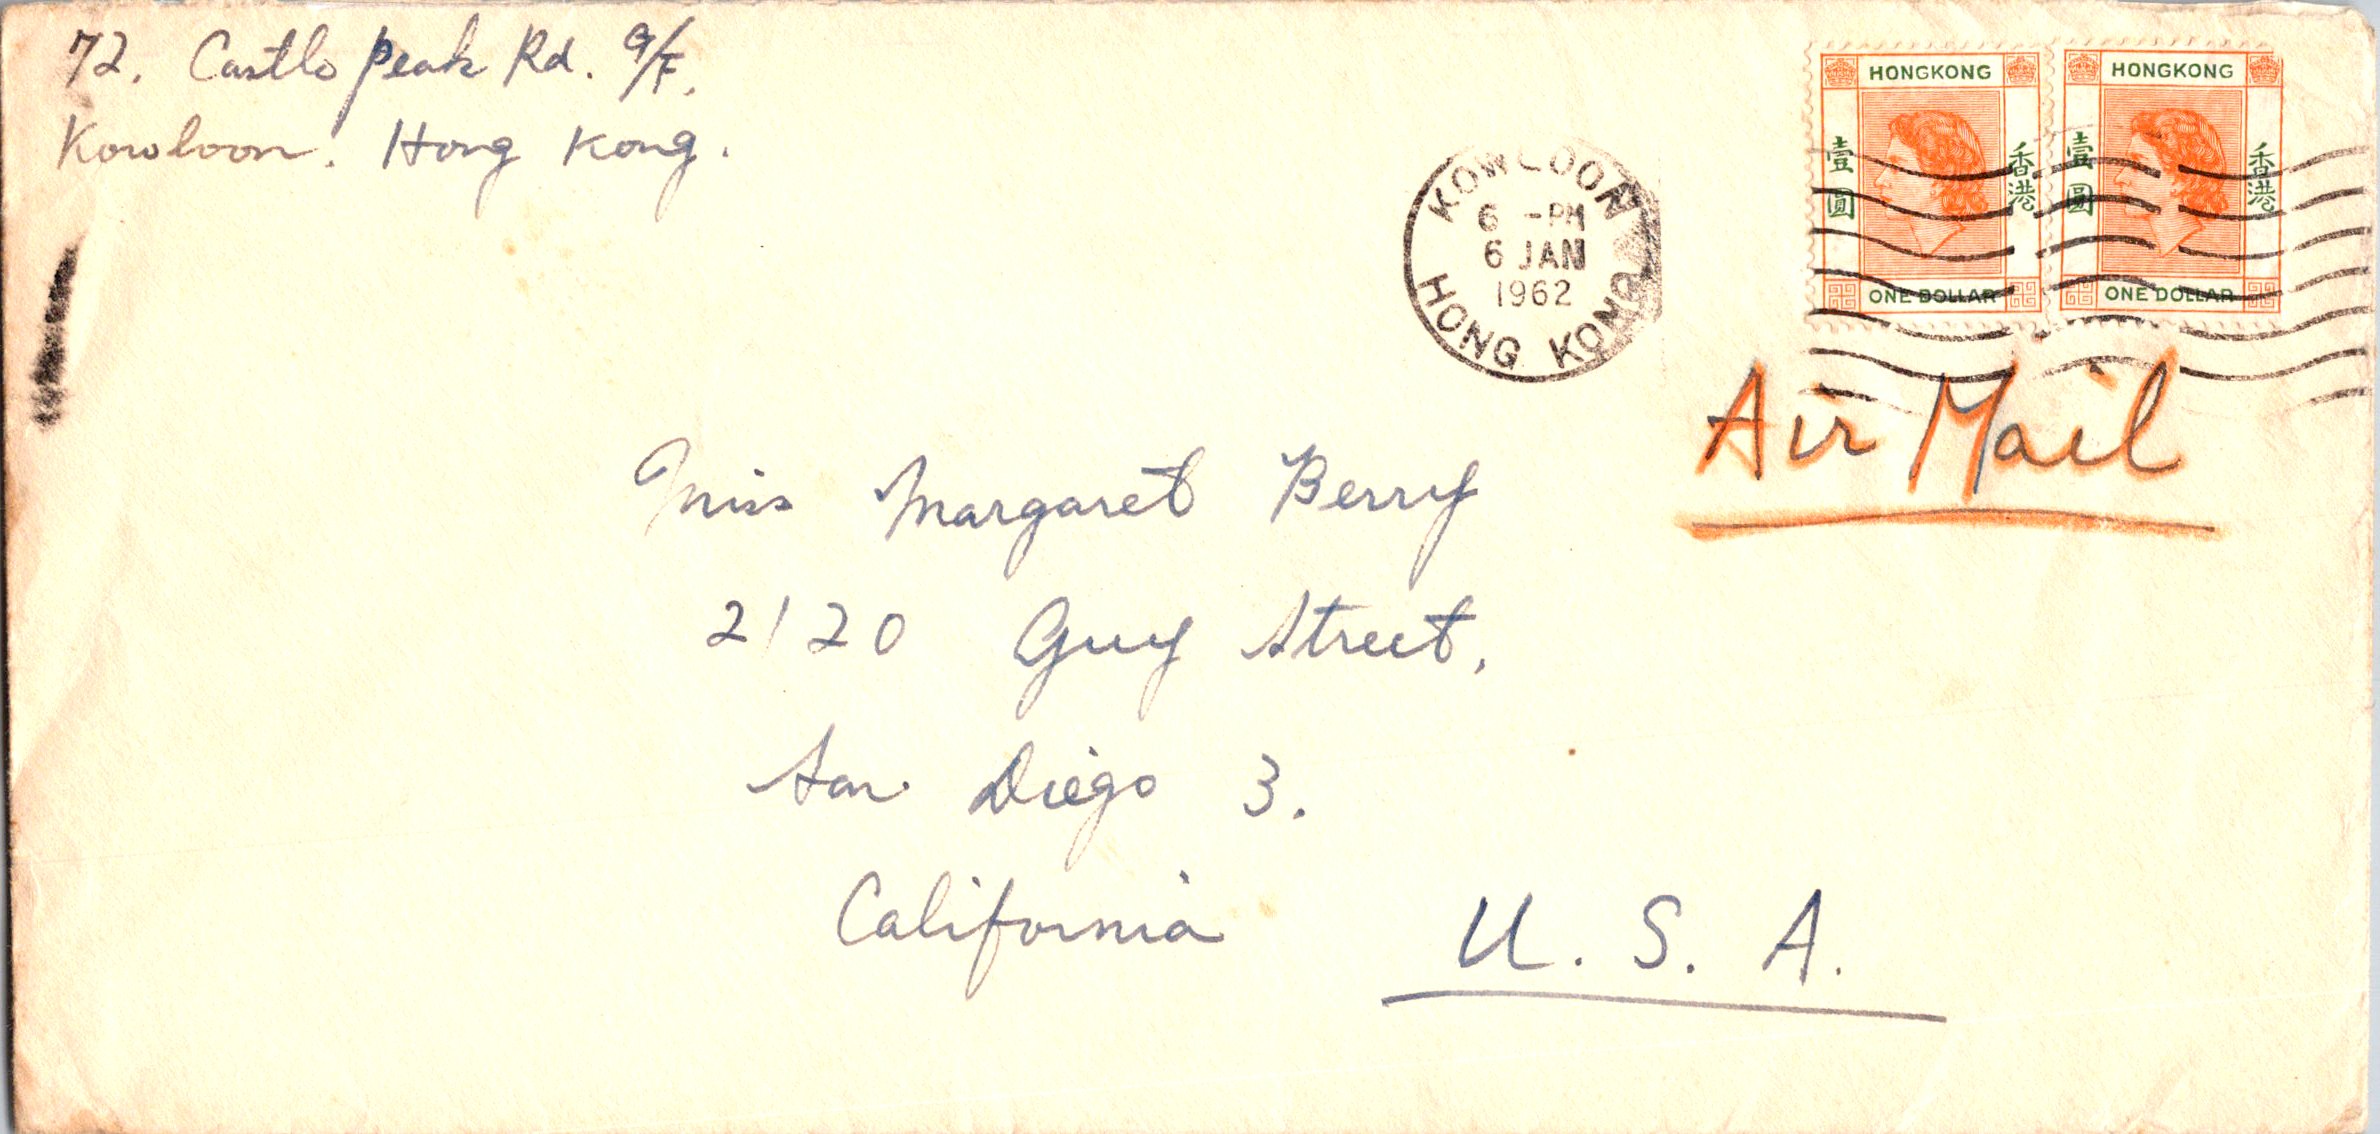 72, Castle Peak Rd. G/F.
Kowloon. Hong Kong.
KOWLOON
6 -PM
6 JAN
1962
HONG KONG
HONGKONG
壹圓
香港
ONE DOLLAR
HONGKONG
壹圓
香港
ONE DOLLAR
Air Mail
Miss Margaret Berry
2120 Guy Street,
San Diego 3.
California
U. S. A.